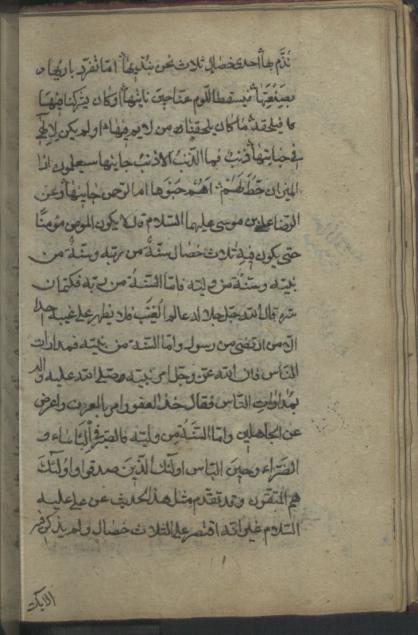 نذم بها احدى خصال ثلاث نحن نبديها اما تفرد بارينا
بصنعتها فيسقط اللوم عنا حين ناتيها او كان يشركنا فيها
كما فيلحقه ما كان يلحقنا من لايم فيها او لم يكن لالهي
في جنايتها ذنب فما الذنب الا ذنب جانيها سيعلمون اذا
الميزان اهم جنوها ام الرحمن جانيها وعن
الرضا علي بن موسى عليهما السلام قال لا يكون المؤمن مؤمنا
حتى يكون فيه ثلاث خصال سنة من ربه وسنة من
نبيه وسنة من وليه فاما السنة من ربه فكتمان
سره قال الله جل جلاله عالم الغيب فلا يظهر على غيبه احدا
الا من ارتضى من رسول واما السنة من نبيه فمدارات
الناس فان الله عز وجل امر نبيه صلى الله عليه واله
بمداراة الناس فقال خذ العفو وامر بالعرف واعرض
عن الجاهلين واما السنة من وليه فالصبر في البأساء و
الضراء وحين الباس اولئك الذين صدقوا واولئك
هم المتقون وقد تقدم مثل هذا الحديث عن علي عليه
السلام غير انه اقتصر على الثلاث خصال ولم يذكر فيه